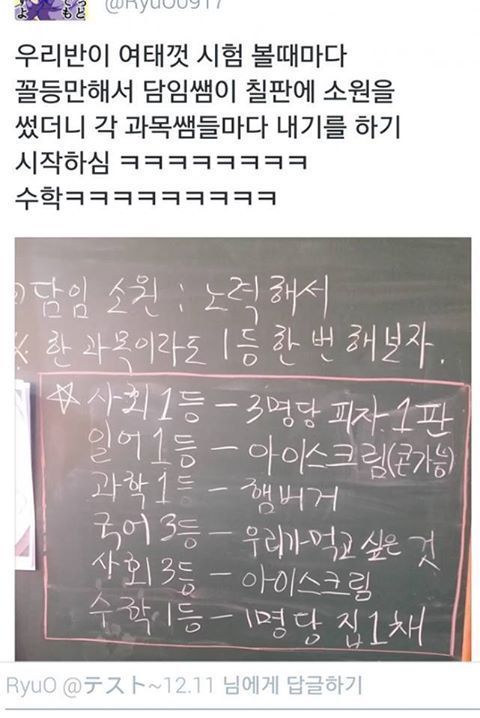 @RyuO0917
우리반이 여태껏 시험 볼때마다
꼴등만해서 담임쌤이 칠판에 소원을
썼더니 각 과목쌤들마다 내기를 하기
시작하심 ㅋㅋㅋㅋㅋㅋㅋㅋ
수학ㅋㅋㅋㅋㅋㅋㅋㅋㅋ
담임 소원 : 노력해서
※ 한 과목이라도 1등 한 번 해보자.
☆ 사회 1등 - 3명당 피자 1판
일어 1등 - 아이스크림(콘가능)
과학 1등 - 햄버거
국어 3등 - 우리가먹고 싶은 것
사회 3등 - 아이스크림
수학 1등 - 1명당 집 1채
RyuO @テスト~12.11 님에게 답글하기